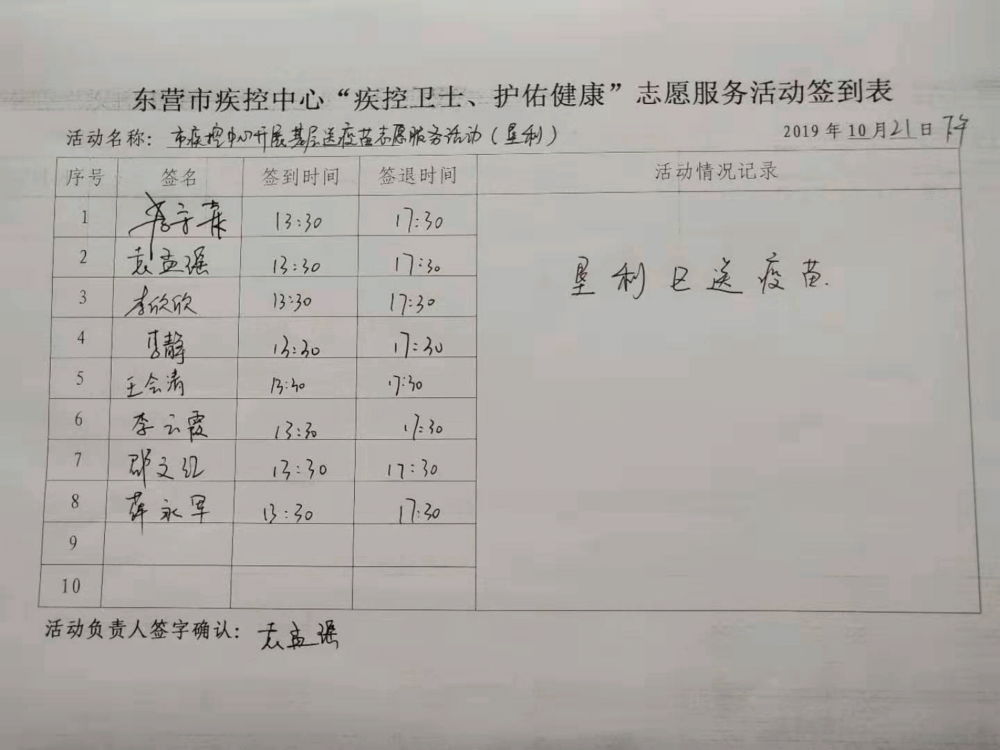 东营市疾控中心“疾控卫士、护佑健康”志愿服务活动签到表
活动名称：市疾控中心开展基层送疫苗志愿服务活动（垦利） 2019年10月21日下午
序号 签名 签到时间 签退时间 活动情况记录
1 13:30 17:30
2 袁孟强 13:30 17:30
垦利区送疫苗.
3 李欣欣 13:30 17:30
4 李静 13:30 17:30
5 王会清 13:30 17:30
6 李云霞 13:30 17:30
7 邵文红 13:30 17:30
8 薛永军 13:30 17:30
9
10
活动负责人签字确认：袁孟强